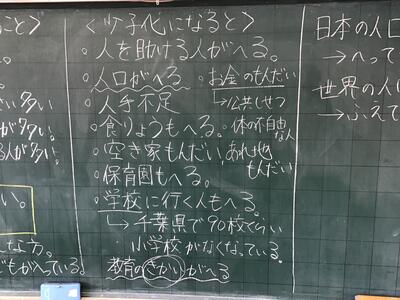 こと〉
。
多い
が多い。
る人が多い。
い。
んな方。
どもがへっている。
〈少子化になると〉
・人を助ける人がへる。
・人口がへる
・お金のもんだい
・人手不足
→公共しせつ
・食りょうもへる。
・体の不自由な人
・空き家もんだい
あれ地もんだい
・保育園もへる。
・学校に行く人もへる。
→千葉県で90校ぐらい
小学校がなくなっている。
教育のきかいがへる
日本の人口
→へって
世界の人
→ふえて